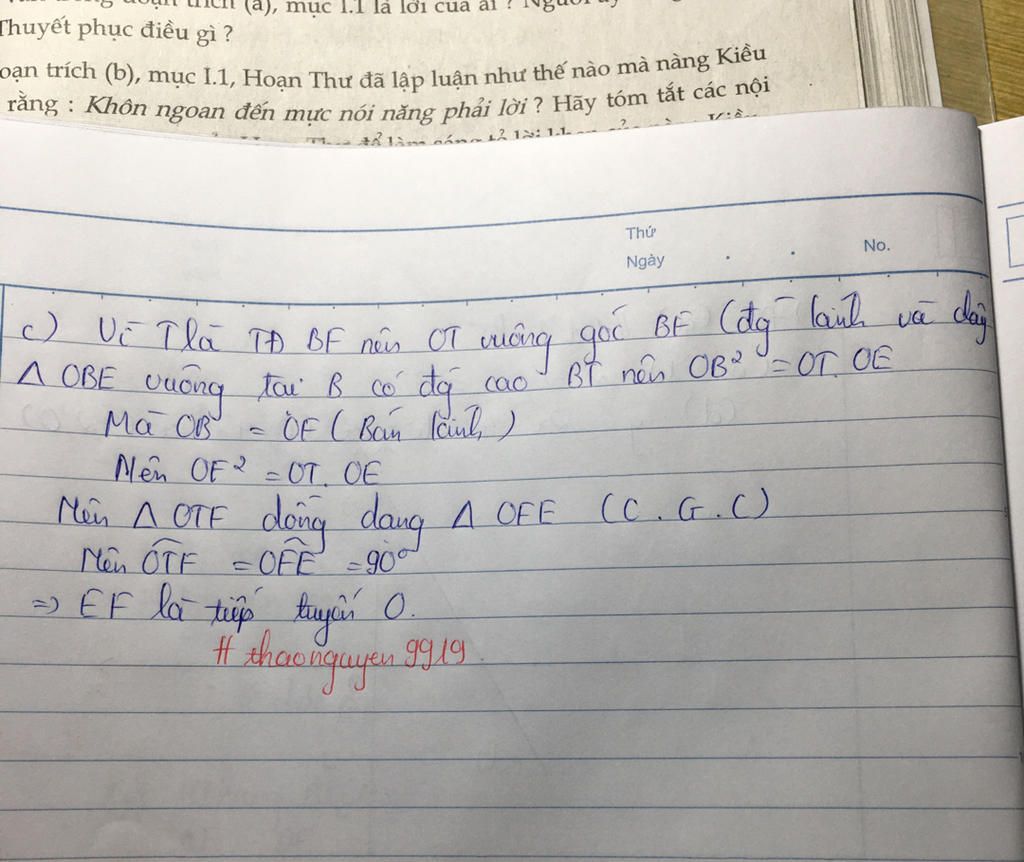 đoạn trích (a), mục I.1 là lời của ai ?
Thuyết phục điều gì ?
oạn trích (b), mục I.1, Hoạn Thư đã lập luận như thế nào mà nàng Kiều
rằng : Khôn ngoan đến mực nói năng phải lời ? Hãy tóm tắt các nội
Thứ
Ngày . . No.
c) Vì T là TĐ BF nên OT vuông góc BF (đg kính và dây
Δ OBE vuông tại B có đg cao BT nên OB² = OT. OE
Mà OB = OF ( Bán kính )
Nên OF² = OT. OE
Nên Δ OTF đồng dạng Δ OFE (C.G.C)
Nên OTF = OFE = 90°
=> EF là tiếp tuyến O.
# thaonguyen9919.